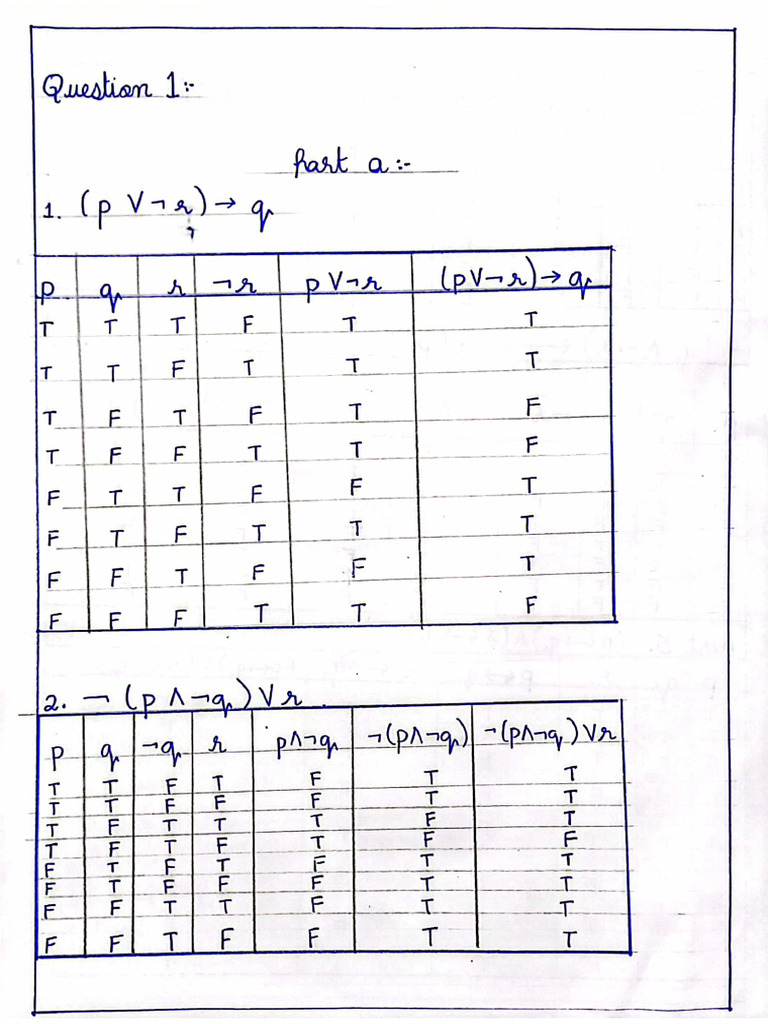 Question 1:-
Part a:-
1. (p ∨ ¬ r) → q
p q r ¬r p ∨ ¬r (p ∨ ¬r) → q
T T T F T T
T T F T T T
T F T F T F
T F F T T F
F T T F F T
F T F T T T
F F T F F T
F F F T T F
2. ¬ (p ∧ ¬q) ∨ r
p q ¬q r p∧¬q ¬(p∧¬q) ¬(p∧¬q) ∨ r
T T F T F T T
T T F F F T T
T F T T T F T
T F T F T F F
F T F T F T T
F T F F F T T
F F T T F T T
F F T F F T T